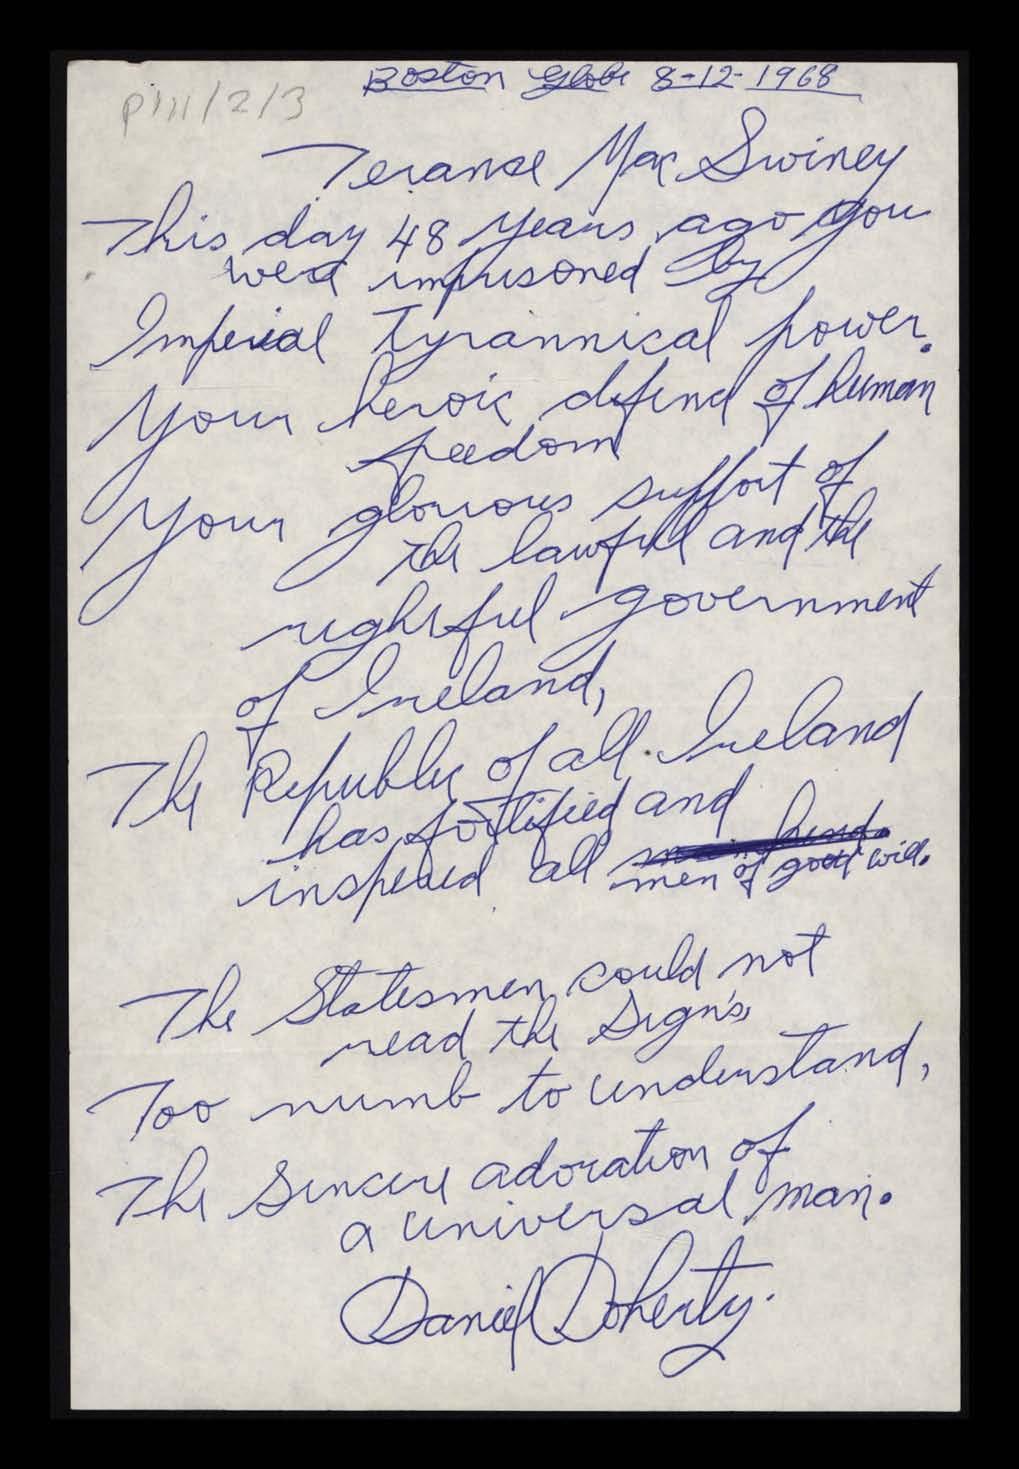 Boston Globe 8-12-1968
P111/2/3
Teranse Mac Swiney
This day 48 years ago you
were imprisoned by
Imperial Tyrannical power.
Your heroic defend of human
freedom
Your glorious support of
the lawful and the
rightful government
of Ireland,
The Republic of all Ireland
has fortified and
inspired all
men of good will.
The Statesmen could not
read the Sign's,
Too numb to understand,
The Sincere adoration of
a universal man.
Daniel Doherty.